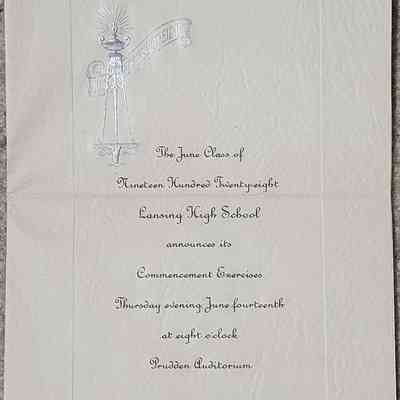 The June Class of
Nineteen Hundred Twenty-eight
Lansing High School
announces its
Commencement Exercises
Thursday evening June fourteenth
at eight o'clock
Prudden Auditorium